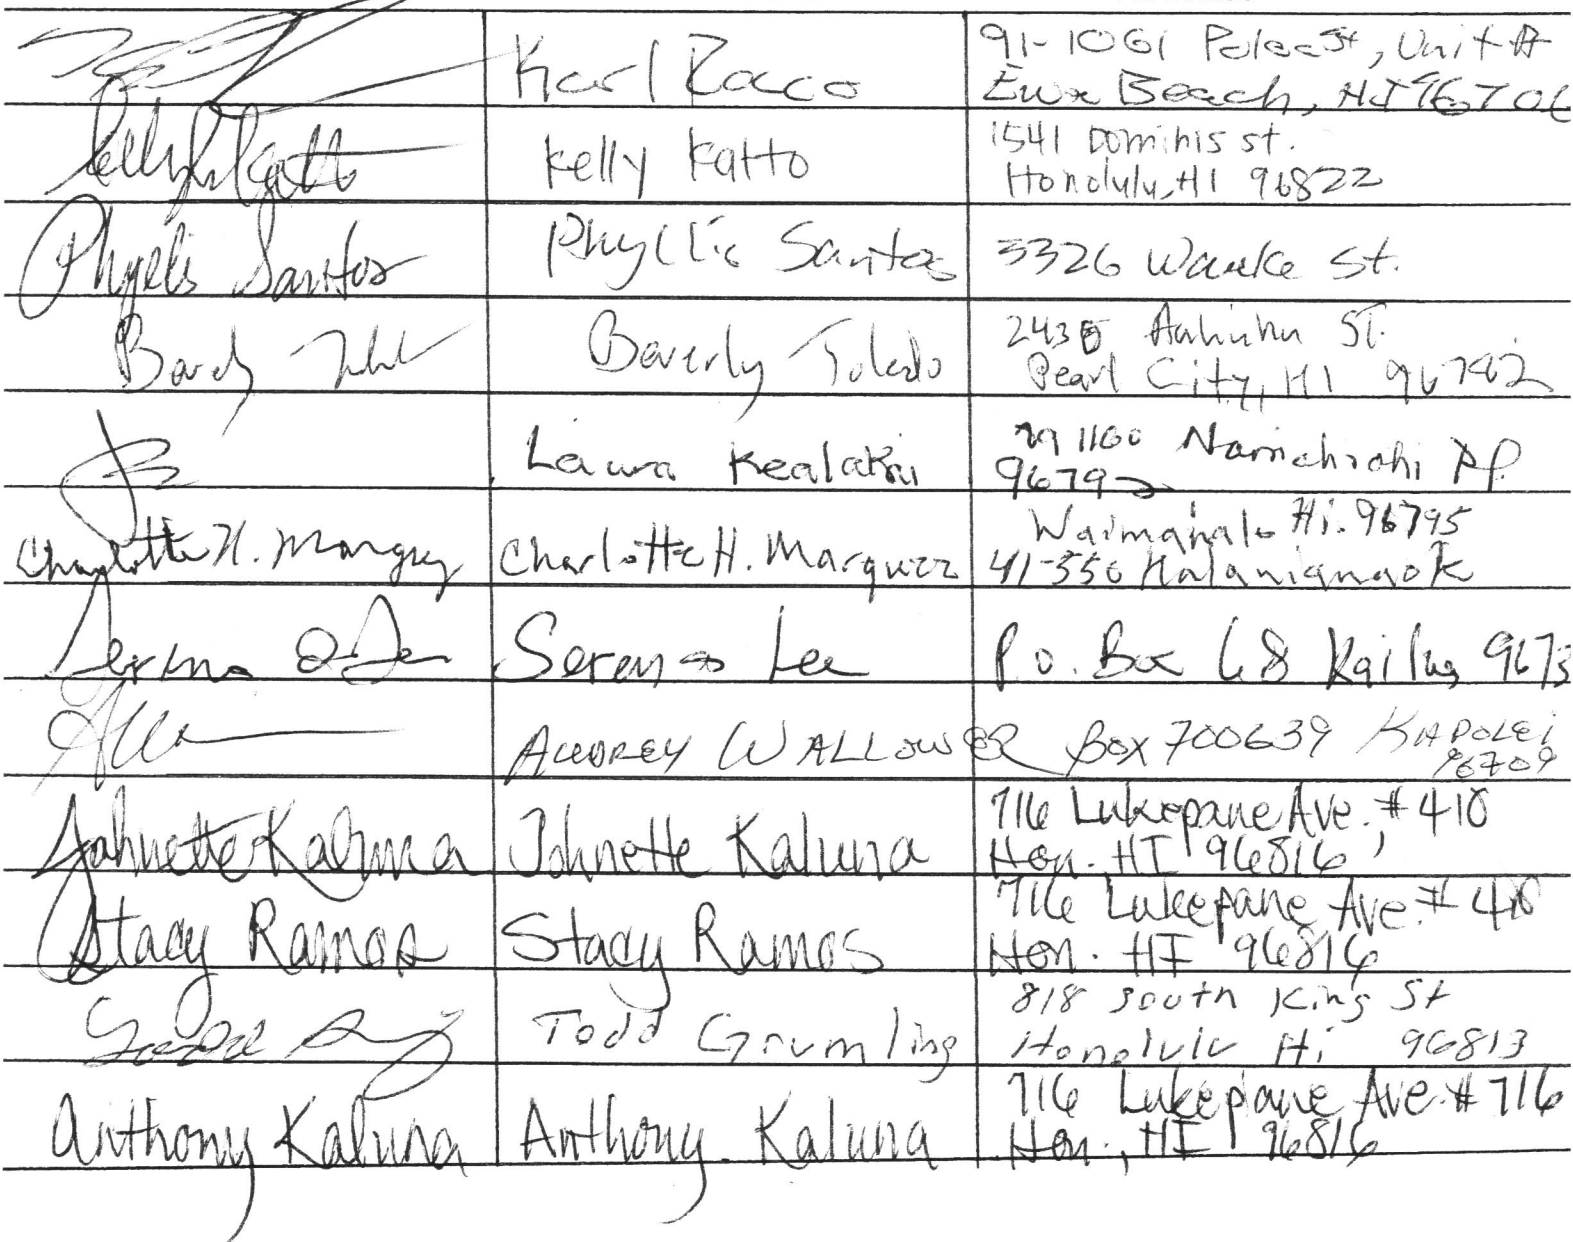 Karl Raco 91-1061 St, Unit A
Ewa Beach, HI 96706
Kelly Katto Kelly Katto 1541 Dominis st.
Honolulu, HI 96822
Phyllis Santos Phyllis Santos 3326 Wauke St.
Beverly Toledo 2435 St.
Pearl City, HI 96782
Laura Kealakai 1160
96792
Waimanalo Hi. 96795
Charlotte H. Marquez Charlotte H. Marquez 41-550
Serena Lee Serena Lee P.O. Box 68 Kailua 9673
AUDREY WALLOWER Box 700639 KAPOLEI
96709
Johnette Kaluna Johnette Kaluna 716 Lukepane Ave. #410
Hon. HI 96816
Stacy Ramos Stacy Ramos 716 Lukepane Ave. # 410
Hon. HI 96816
Todd Grumling 818 South King St
Honolulu Hi 96813
Anthony Kaluna Anthony Kaluna 716 Lukepane Ave. # 716
Hon., HI 96816